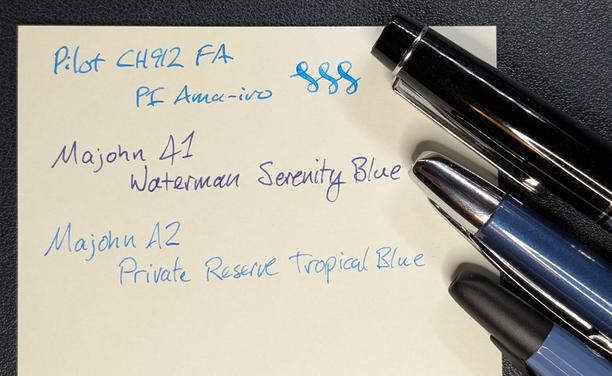 Pilot CH912 FA
PI Ama-iro
Majohn A1
Waterman Serenity Blue
Majohn A2
Private Reserve Tropical Blue